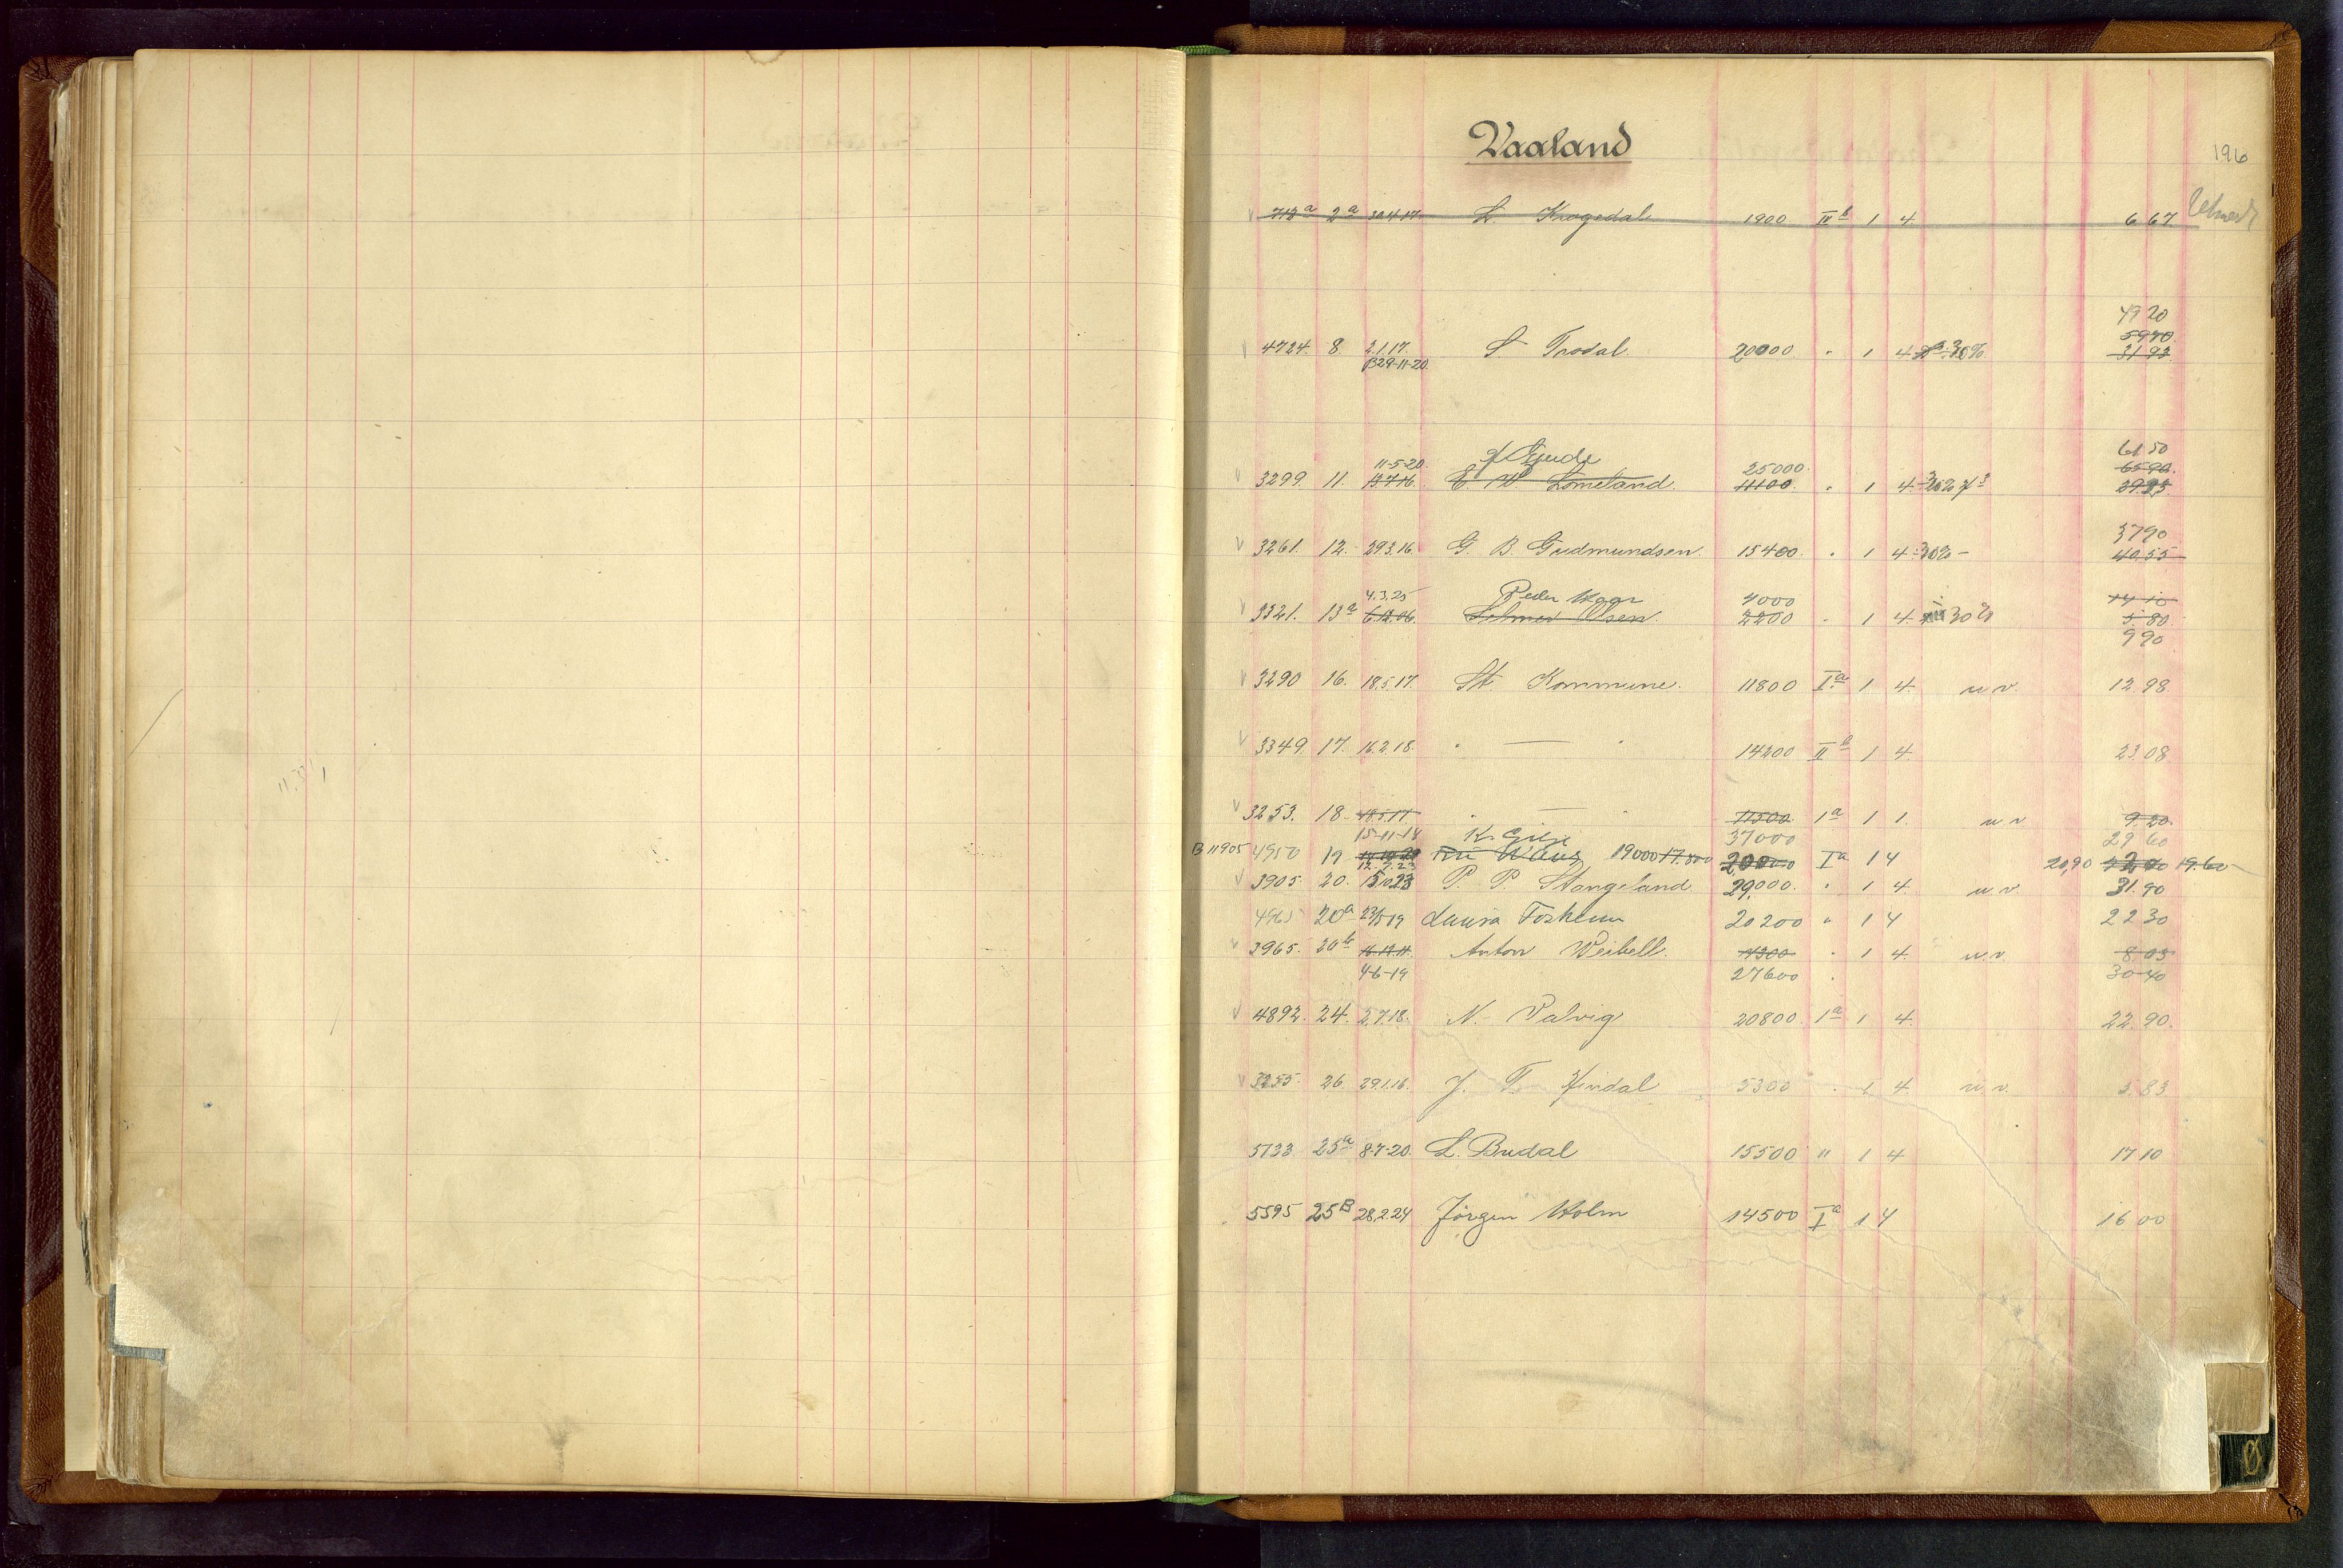 Vaaland
196
712a 2a 30.4.17. L. Krogedal 1900 IIb 1 4. 6 67
49 20
59 40
4724. 8. 2.1.17. L. Trodal. 20000. " 1 4 30% 31 93
B29-11-20.
61 50
11-5-20. Gjude 25000. 65 90.
3299. 11. 13.7.16. E. W. Lomeland. 11100. " 1 4. 30% 29 25
37 90
3261. 12. 29.3.16. G. B. Gudmundsen. 15400. " 1 4. 30% - 40.55
4.3.25 Peder Haar 4000 14 10
3321. 13a 6.12.06. Selmer Olsen. 2200 " 1 4. 30% 5. 80.
9 90
3290 16. 18.5.17. St. Kommune. 11800 Ia 1 4. u. v. 12. 98.
3349. 17. 16.2.18. " — " 14200 IIb 1 4. 23 08.
3253. 18. 18.5.17 " — " 11500. Ia 1 1. u. v 9.20.
15-11-18 K. Gilje 37000 29 60
B 11905 4950 19 19000 17.500 20000 Ia 1 4 20,90 22 00 19.60
12.7.23
3905. 20. 15.10.23 P. P. Stangeland 29,000. " 1 4. u. v. 31. 90
4965 20a 23/5 19 Laura Fosheim 20200 " 1 4 22 30
3965. 20b 16.12.11. Anton Weibell. 7300 " 1 4. u. v. 8 03
4-6-19 27600 " 30 40
4892. 24. 2.7.18. N. Valvig 20800. Ia 1 4. 22. 90.
3255. 26 29.1.16. J. T. Hindal 5300 " 1 4. u. v. 5. 83
5733 25a 8-7-20. L. Budal 15500 " 1 4 17 10
5595 25B 28.2.24 Jörgen Holm 14500 Ia 1 4 16 00
Ø